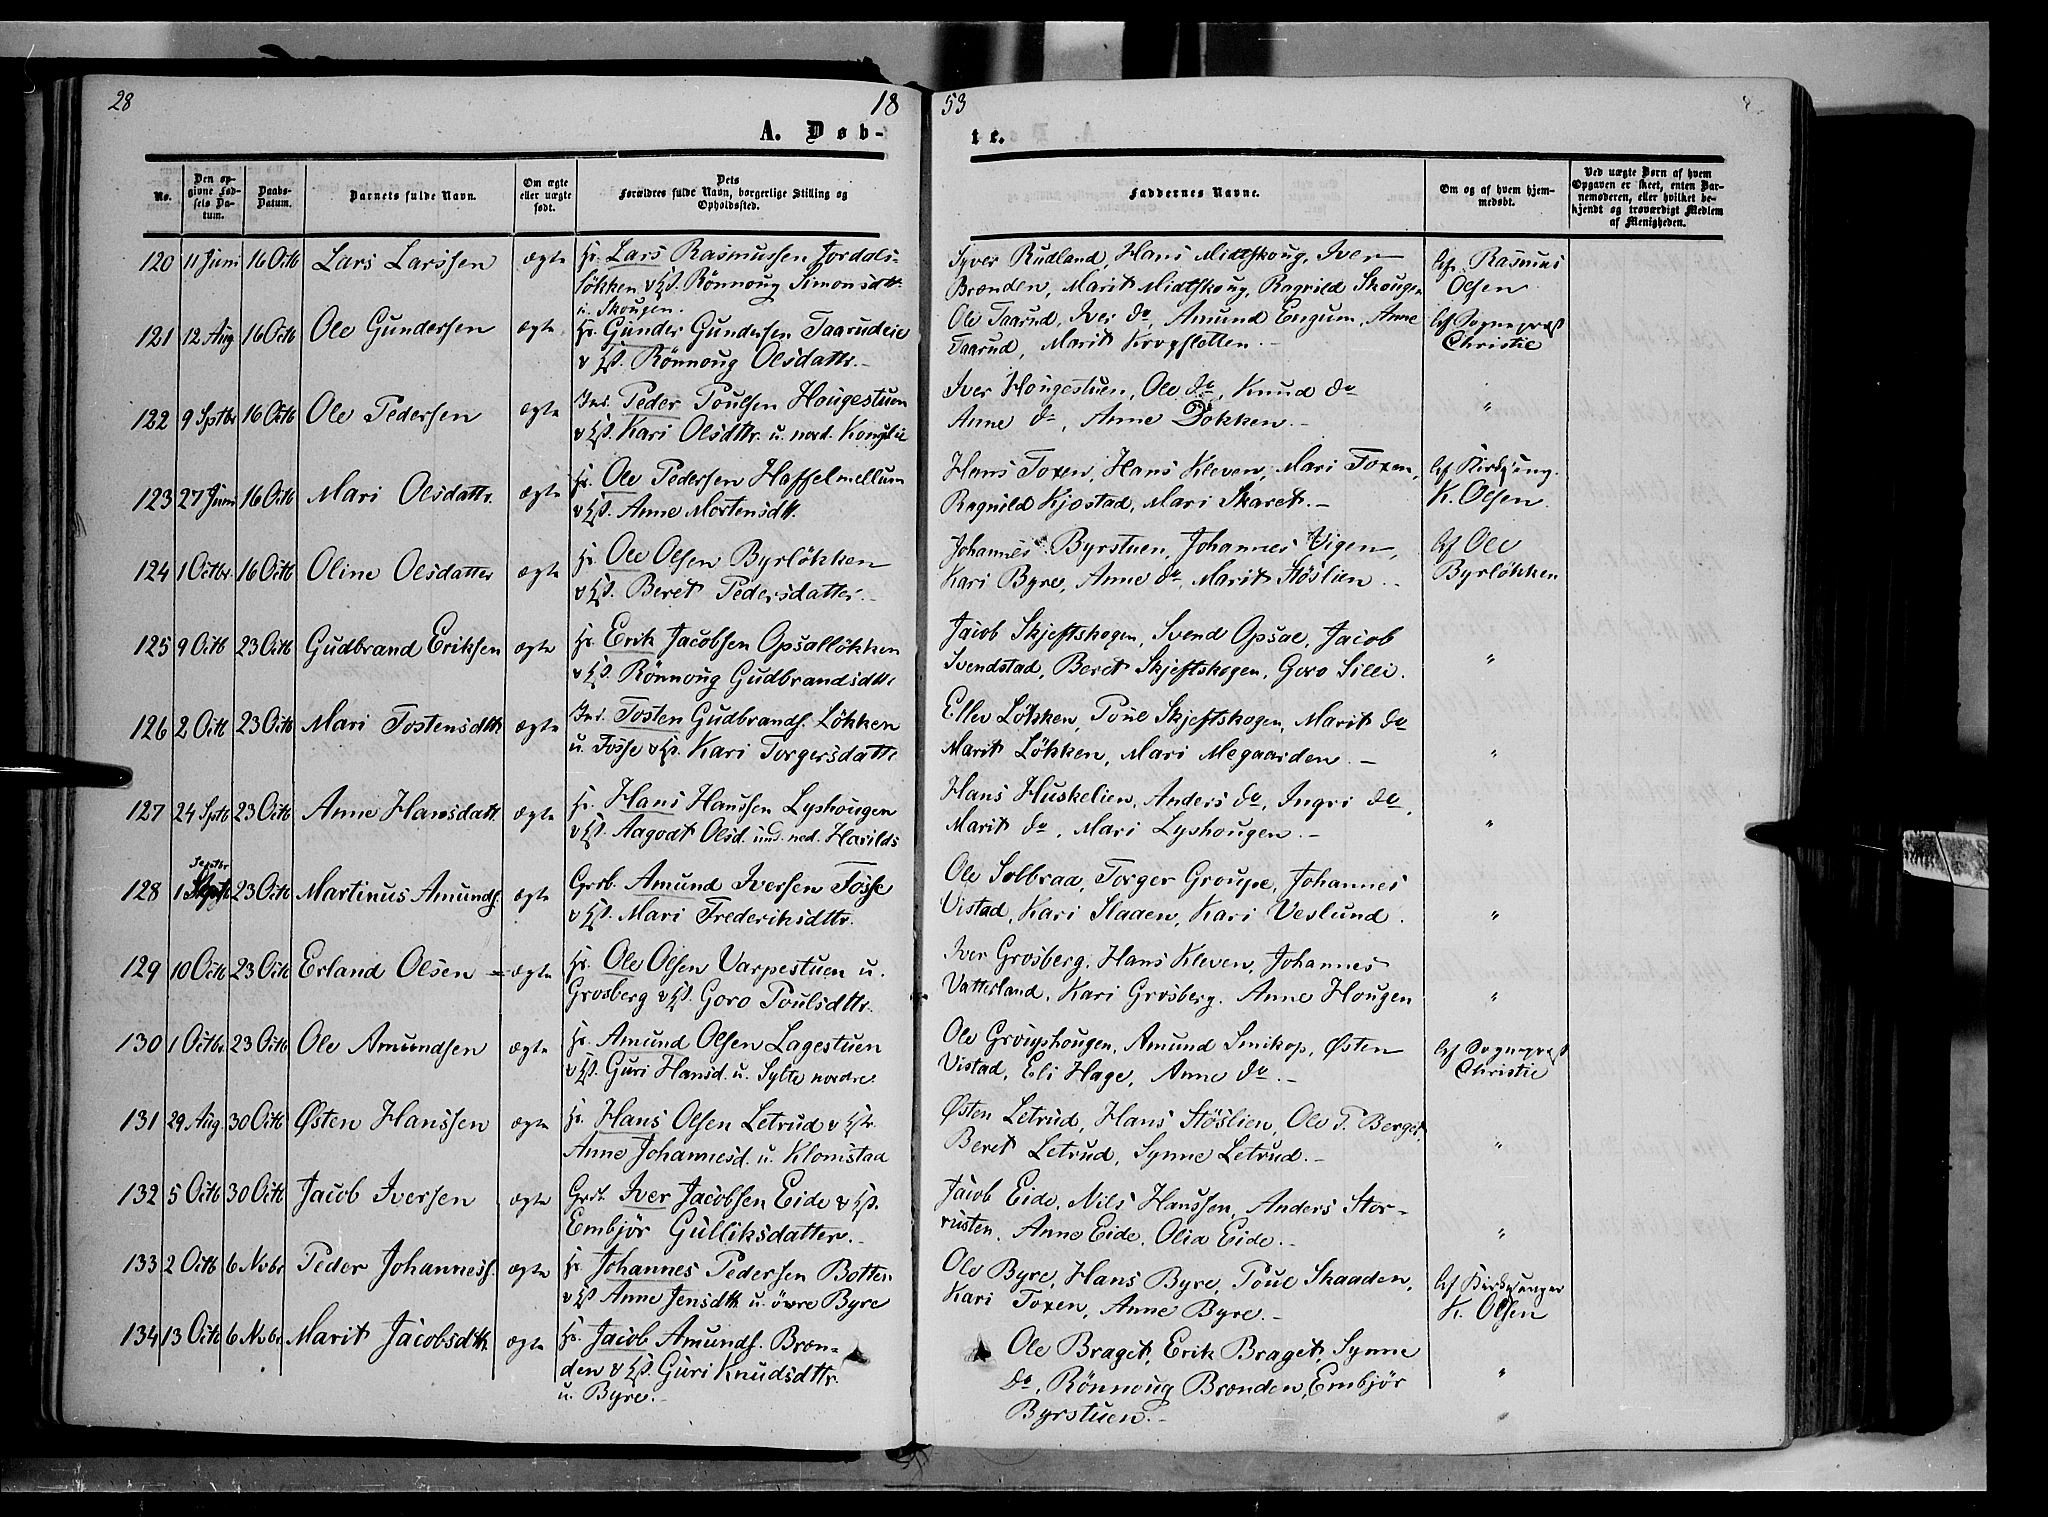 28
18
53
A. Døb-
te.
No.
Den op-
givne Fød-
sels Da-
tum.
Daabs-
Datum.
Barnets fulde Navn.
Om ægte
eller uægte
født.
Dets
Forældres fulde Navn, borgerlige Stilling og
Opholdssted.
Faddernes Navne.
Om og af hvem hjem-
medøbt.
Ved uægte Børn af hvem
Opgaven er skeet, enten Bar-
nemoderen, eller hvilket be-
kjendt og troværdigt Medlem
af Menigheden.
120 11 Juni 16 Octb Lars Larssen ægte Hr. Lars Rasmussen Jordals-
løkken Rönnoug Simonsdtt.
u. Skougen.
Syver Rudland, Hans Midtskoug, Iver
Brænden, Marit Midtskoug, Ragnild Skougen
Rasmus
Olsen
121 12 Aug 16 Octb Ole Gundersen ægte Hr. Gunder Gundersen Taarudeie
Rönnoug Olsdattr. –
Ole Taarud, Iver do, Amund Engum, Anne
Taarud, Marit Krogsletten. –
af Sognepræst
Christie
122 9 Sptbr 16 Octb Ole Pedersen ægte Ind. Peder Poulsen Hougestuen
Kari Olsdttr. u. nord. Konglie
Iver Hougestuen, Ole do, Knud do
Anne do, Anne Dokken. –
"
123 27 Juni 16 Octb Mari Olsdattr. ægte Hr. Ole Pedersen Haffelmellum
Anne Mortensdtt.
Hans Toxen, Hans Kleven, Mari Toxen,
Ragnild Kjostad, Mari Skaret. –
af Kirkesang.
K. Olsen.
124 1 Octbr. 16 Octb Oline Olsdatter ægte Hr. Ole Olsen Byrløkken
Beret Pedersdatter. –
Johannes Byrstuen, Johannes Vigen,
Kari Byre, Anne do, Marit Støslien. –
af Ole
Byrløkken
125 9 Octb 23 Octb Gudbrand Eriksen ægte Hr. Erik Jacobsen Opsalløkken
Rönnoug Gudbrandsdtt.
Jacob Skjeftskogen, Svend Opsal, Jacob
Svendstad, Beret Skjeftskogen, Goro Silli.
"
126 2 Octb 23 Octb Mari Tostensdtt ægte Ind. Tosten Gudbrands. Løkken
u. Fosse Kari Torgersdattr.
Ellev Løkken, Poul Skjeftskogen, Marit do
Marit Løkken, Mari Megaarden. –
"
127 24 Sptb 23 Octb Anne Hansdatt. ægte Hr. Hans Hanssen Lyshougen
Aagodt Olsd. und. ned. Harilds
Hans Huskelien, Anders do, Ingri do,
Marit do, Mari Lyshougen. –
"
Septbr
128 1 23 Octb Martinus Amunds. ægte Grdb. Amund Iversen Fosse
Mari Frederiksdttr.
Ole Solbraa, Torger Groupe, Johannes
Vistad, Kari Slaaen, Kari Veslund.
"
129 10 Octb 23 Octb Erland Olsen – ægte Hr. Ole Olsen Varpestuen u.
Grosberg Goro Poulsdttr.
Iver Grosberg, Hans Kleven, Johannes
Vatterland, Kari Grosberg, Anne Hougen
"
130 1 Octbr 23 Octb Ole Amundsen ægte Hr. Amund Olsen Lagestuen
Guri Hansd. u. Sylte nordre.
Ole Groupshougen, Amund Smikop, Østen
Vistad, Eli Hage, Anne do. –
af Sognepræst
Christie
131 29 Aug. 30 Octb Østen Hanssen ægte Hr. Hans Olsen Letrud
Anne Johannesd. u. Klomstad
Østen Letrud, Hans Støslien, Ole P. Berget,
Beret Letrud, Synne Letrud. –
"
132 5 Octb 30 Octb Jacob Iversen ægte Grdb. Iver Jacobsen Eide
Embjör Gulliksdatter. –
Jacob Eide, Nils Hanssen, Anders Stor-
rusten, Anne Eide, Olia Eide. –
"
133 2 Octb 6 Nvbr Peder Johanness. ægte Hr. Johannes Pedersen Botten
Anne Jensdtt u. øvre Byre
Ole Byre, Hans Byre, Poul Skaaden,
Kari Toxen, Anne Byre. –
af Kirkesanger
K. Olsen
134 13 Octb 6 Nvbr. Marit Jacobsdtt. ægte Hr. Jacob Amunds. Bræn-
den Guri Knudsdttr.
u. Byre. –
Ole Braget, Erik Braget, Synne
do, Rönnoug Brænden, Embjör
Byrstuen. –
"